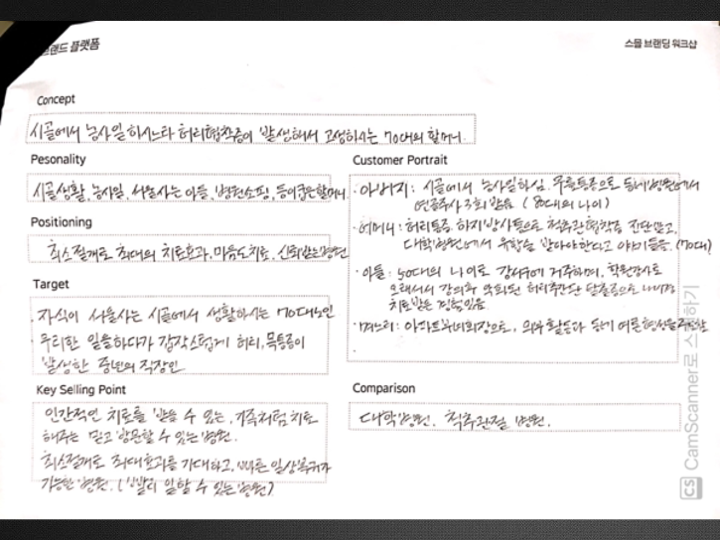 브랜드 플랫폼
스몰 브랜딩 워크샵
Concept
시골에서 농사일 하시느라 허리협착증이 발생해서 고생하시는 70대의 할머니.
Pesonality
시골생활, 농사일, 서울사는 아들, 병원쇼핑, 등이굽은할머니.
Positioning
최소절개로 최대의 치료효과, 마음도치료, 신뢰받는병원
Target
· 자식이 서울사는 시골에서 생활하시는 70대노인
· 무리한 일을하다가 갑작스럽게 허리, 목통증이
발생한 중년의 직장인
Key Selling Point
인간적인 치료를 받을 수 있는, 가족처럼 치료
해주는 믿고 방문할 수 있는 병원.
최소절개로 최대효과를 기대하고, 빠른 일상복귀가
가능한 병원. (빨리 일할 수 있는 병원)
Customer Portrait
· 아버지: 시골에서 농사일하심. 무릎통증으로 동네병원에서
연골주사 3회 맞음 (80대의 나이)
· 어머니: 허리통증, 하지방사통으로 척추관협착증 진단받고,
대학병원에서 수술을 받아야한다고 이야기들음. (70대)
· 아들: 50대의 나이로 강서구에 거주하며, 학원강사로
오래서서 강의후 악화된 허리추간판 탈출증으로
치료받은 경험있음
· 며느리: 아파트부녀회장으로,
Comparison
대학병원, 척추관절 병원.
CS CamScanner로 스캔하기